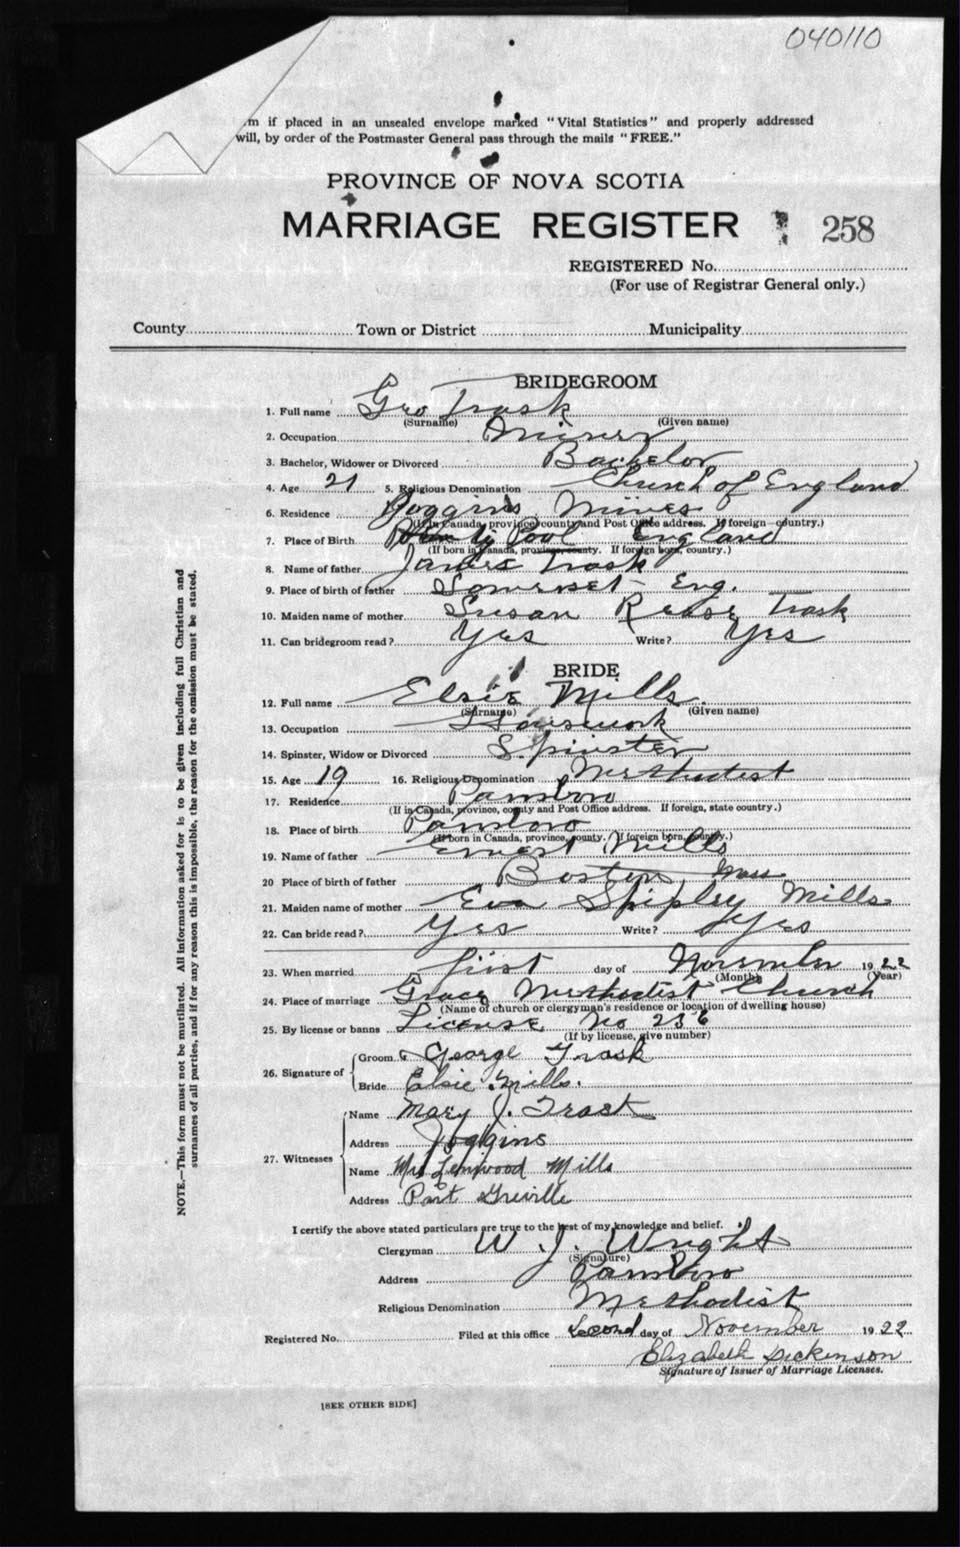 040110
m if placed in an unsealed envelope marked "Vital Statistics" and properly addressed
will, by order of the Postmaster General pass through the mails "FREE."
PROVINCE OF NOVA SCOTIA
MARRIAGE REGISTER 258
REGISTERED No.
(For use of Registrar General only.)
County Town or District Municipality
BRIDEGROOM
1. Full name Geo Trask
(Surname) (Given name)
2. Occupation Miner
3. Bachelor, Widower or Divorced Bachelor
4. Age 21 5. Religious Denomination Church of England
6. Residence Joggins Mines
(If in Canada, province, county and Post Office address. If foreign—country.)
7. Place of Birth Pool England
(If born in Canada, province, county. If foreign born, country.)
8. Name of father James Trask
9. Place of birth of father Somerset Eng.
10. Maiden name of mother Susan Trask
11. Can bridegroom read? Yes Write? Yes
BRIDE
12. Full name Elsie Mills
(Surname) (Given name)
13. Occupation Housework
14. Spinster, Widow or Divorced Spinster
15. Age 19 16. Religious Denomination Methodist
17. Residence Parrsboro
(If in Canada, province, county and Post Office address. If foreign, state country.)
18. Place of birth Parrsboro
(If born in Canada, province, county. If foreign born, country.)
19. Name of father Ernest Mills
20 Place of birth of father Boston Mass
21. Maiden name of mother Eva Shipley Mills
22. Can bride read? Yes Write? Yes
23. When married first day of November 1922
(Month) (Year)
24. Place of marriage Grace Methodist Church
(Name of church or clergyman's residence or location of dwelling house)
25. By license or banns License No 236
(If by license, give number)
26. Signature of
Groom George Trask
Bride Elsie Mills.
27. Witnesses
Name Mary J. Trask
Address Joggins
Name Mrs Mills
Address Port Greville
I certify the above stated particulars are true to the best of my knowledge and belief.
Clergyman W. J. Wright
(Signature)
Address Parrsboro
Religious Denomination Methodist
Registered No. Filed at this office Second day of November 1922
Elizabeth Dickenson
Signature of Issuer of Marriage Licenses.
[SEE OTHER SIDE]
NOTE.—This form must not be mutilated. All information asked for is to be given including full Christian and
surnames of all parties, and if for any reason this is impossible, the reason for the omission must be stated.